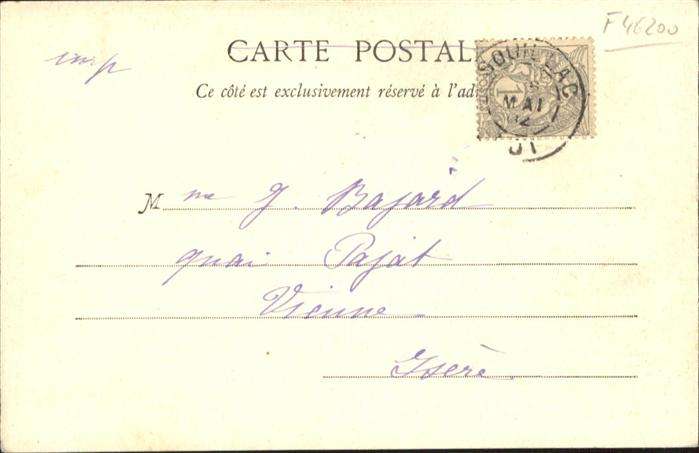 imp
F 46200
CARTE POSTAL
Ce côté est exclusivement réservé à l'ad
SOUILLAC
5
MAI
02
Mme G. Bajard
quai Pajot
Vienne
Isère